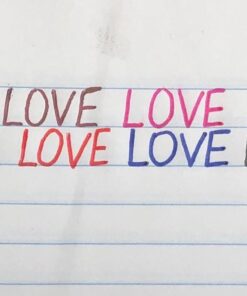 LOVE LOVE
LOVE LOVE